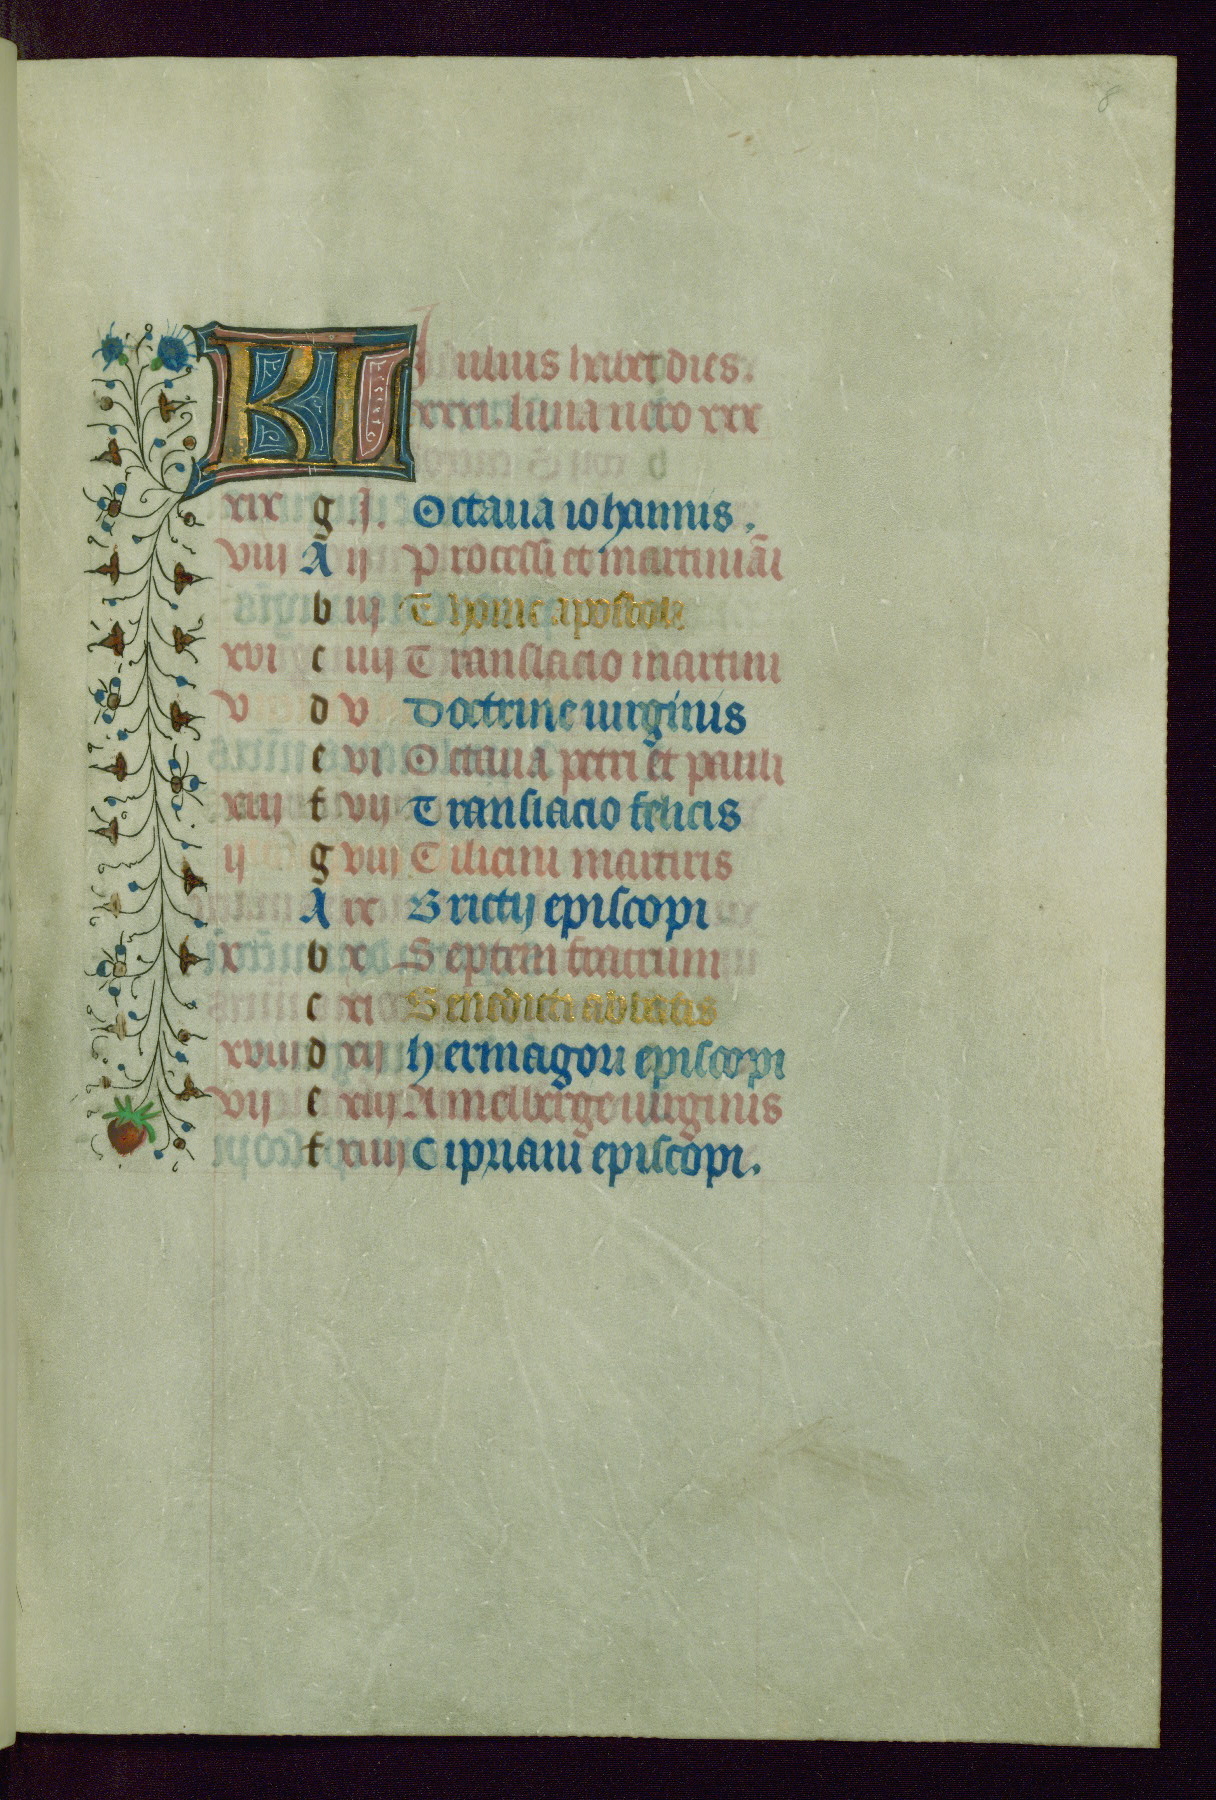 8
KL Iulius habet dies.
xxxi. luna uero xxx
xix g .J. Octaua iohannis.
viii A ii Processi et martiniãi
b iii Thome apostoli
xvi c iiii Translacio martini
v d v Doctrine uirginis
e vi Octaua petri et pauli
xiii f vii Translacio felicis
ii g viii Ciliani martiris
A ix Brictij episcopi
x b x Septem fratrum
c xi Benedicti abbatis
xviii d xii Hermagori episcopi
vii e xiii Amelberge uirginis
f xiiii Cipriani episcopi.